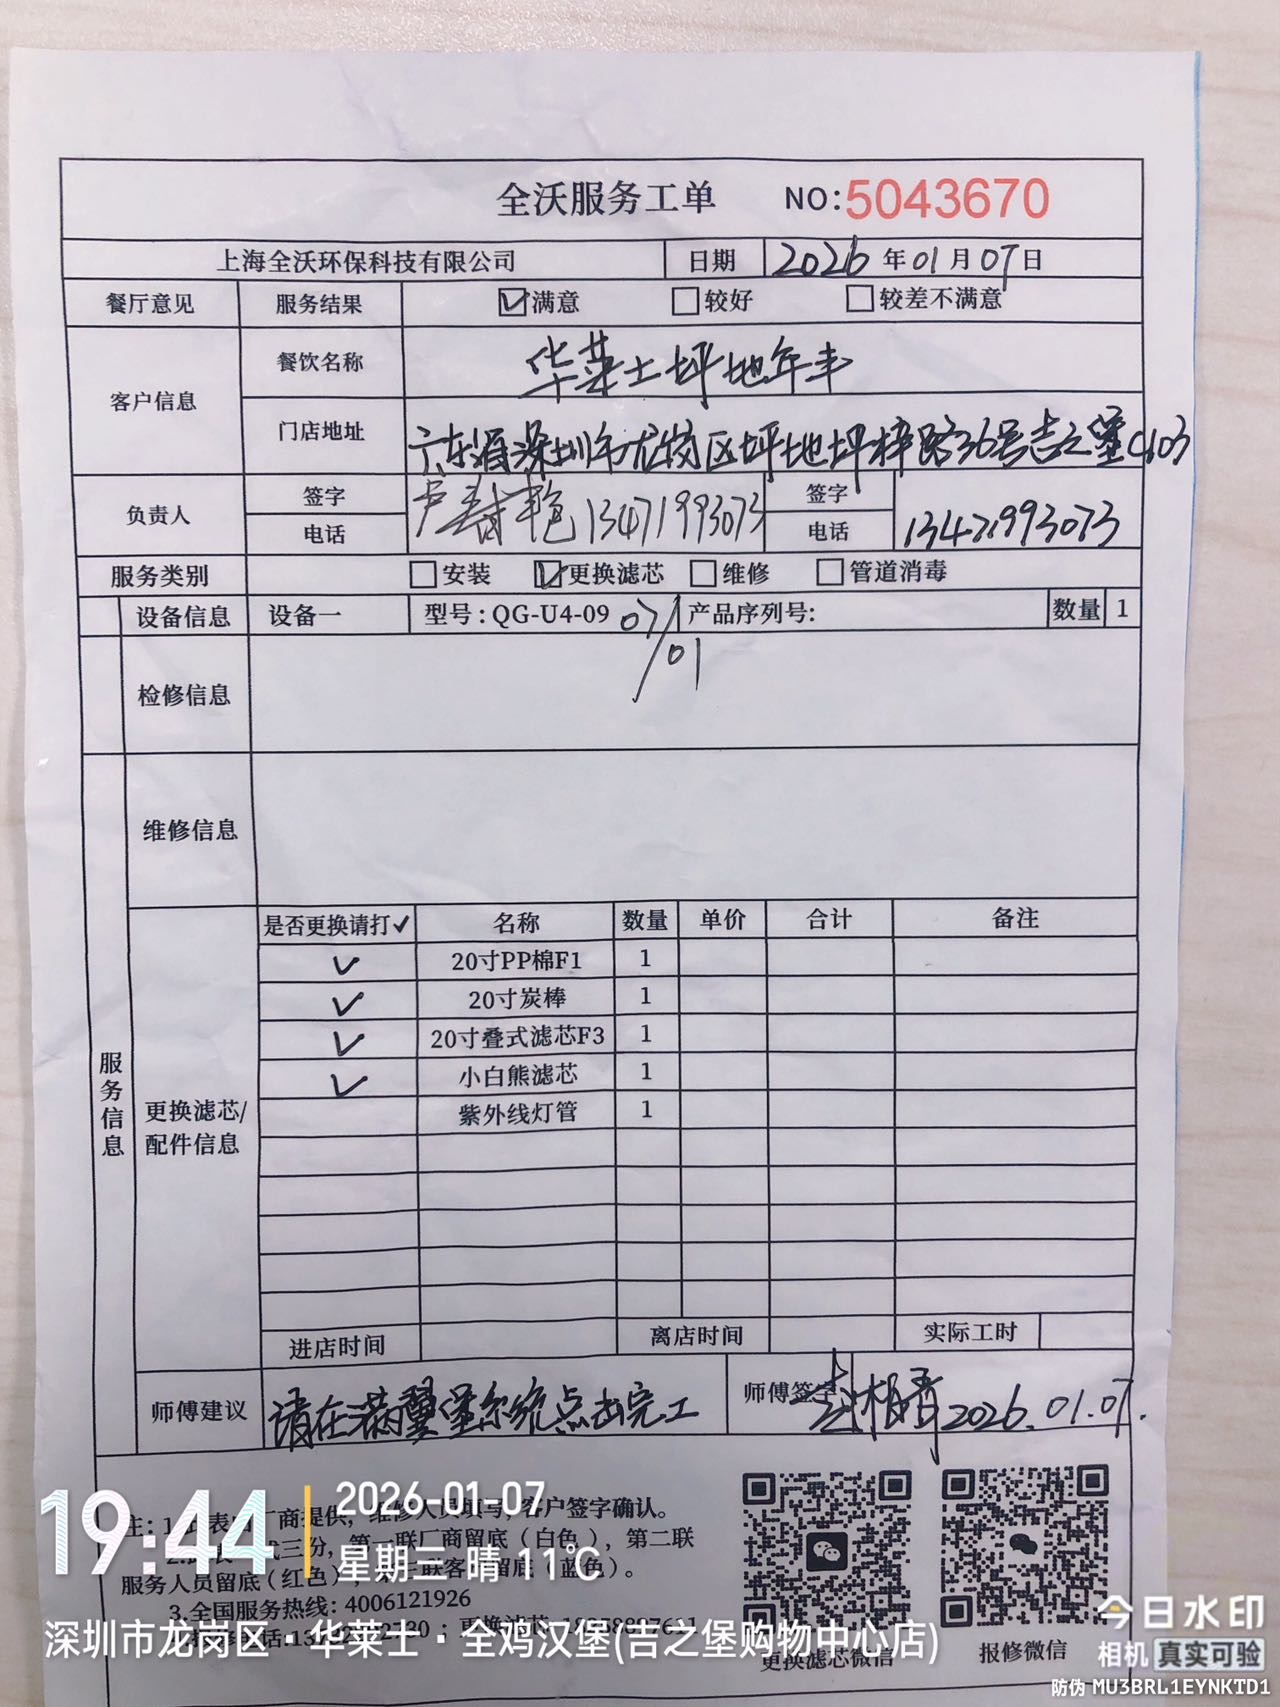 全沃服务工单 NO:5043670
上海全沃环保科技有限公司 日期 2026年01月07日
餐厅意见 服务结果 ☑满意 □较好 □较差不满意
客户信息 餐饮名称 华莱士坪地年丰
门店地址 广东省深圳市龙岗区坪地坪梓路36号吉之堡C103
负责人 签字 卢 13471993073 签字
电话 电话 13471993073
服务类别 □安装 ☑更换滤芯 □维修 □管道消毒
设备信息 设备一 型号:QG-U4-09 07/01 产品序列号: 数量 1
检修信息
维修信息
服务信息
更换滤芯/配件信息
是否更换请打✓ 名称 数量 单价 合计 备注
✓ 20寸PP棉F1 1
✓ 20寸炭棒 1
✓ 20寸叠式滤芯F3 1
✓ 小白熊滤芯 1
紫外线灯管 1
进店时间 离店时间 实际工时
师傅建议 请在 系统点击完工 师傅签字 2026.01.07.
注:1. 表由厂商提供,维修人员填写,客户签字确认。
2. 三份,第一联厂商留底(白色),第二联
服务人员留底(红色),第三联客 留底(蓝色)。
3.全国服务热线:4006121926
更换滤芯微信
报修微信
19:44
2026-01-07
星期三 晴 11℃
深圳市龙岗区·华莱士·全鸡汉堡(吉之堡购物中心店)
今日水印
相机 真实可验
防伪 MU3BRL1EYNKTD1